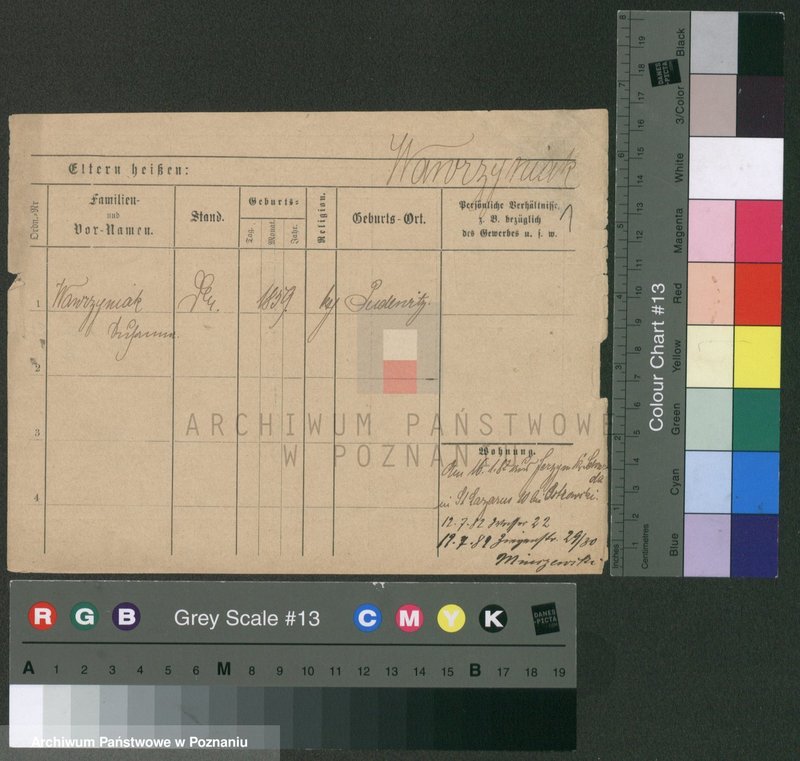 Wawrzyniak
Eltern heißen:
Ordn.-Nr
Familien-
und
Vor-Namen.
Stand.
Geburts-
Tag.
Monat.
Jahr.
Religion.
Geburts-Ort.
Persönliche Verhältnisse,
z. B. bezüglich
des Gewerbes u. s. w.
1
Wawrzyniak
1859.
Pudewitz.
2
3
4
ARCHIWUM PAŃSTWOWE
W POZNANIU
Wohnung.
in St Lazarus
12.7.82 22
19.7.82 Ziegenstr. 29/30
8
7
6
5
4
3
2
1
Inches
19
18
17
16
15
14
13
12
11
10
9
8
7
6
5
4
3
2
1
Centimetres
DANES
-PICTA
.COM
Colour Chart #13
Black
3/Color
White
Magenta
Red
Yellow
Green
Cyan
Blue
R G B
Grey Scale #13
C M Y K
DANES
-PICTA
.COM
A 1 2 3 4 5 6 M 8 9 10 11 12 13 14 15 B 17 18 19
Archiwum Państwowe w Poznaniu